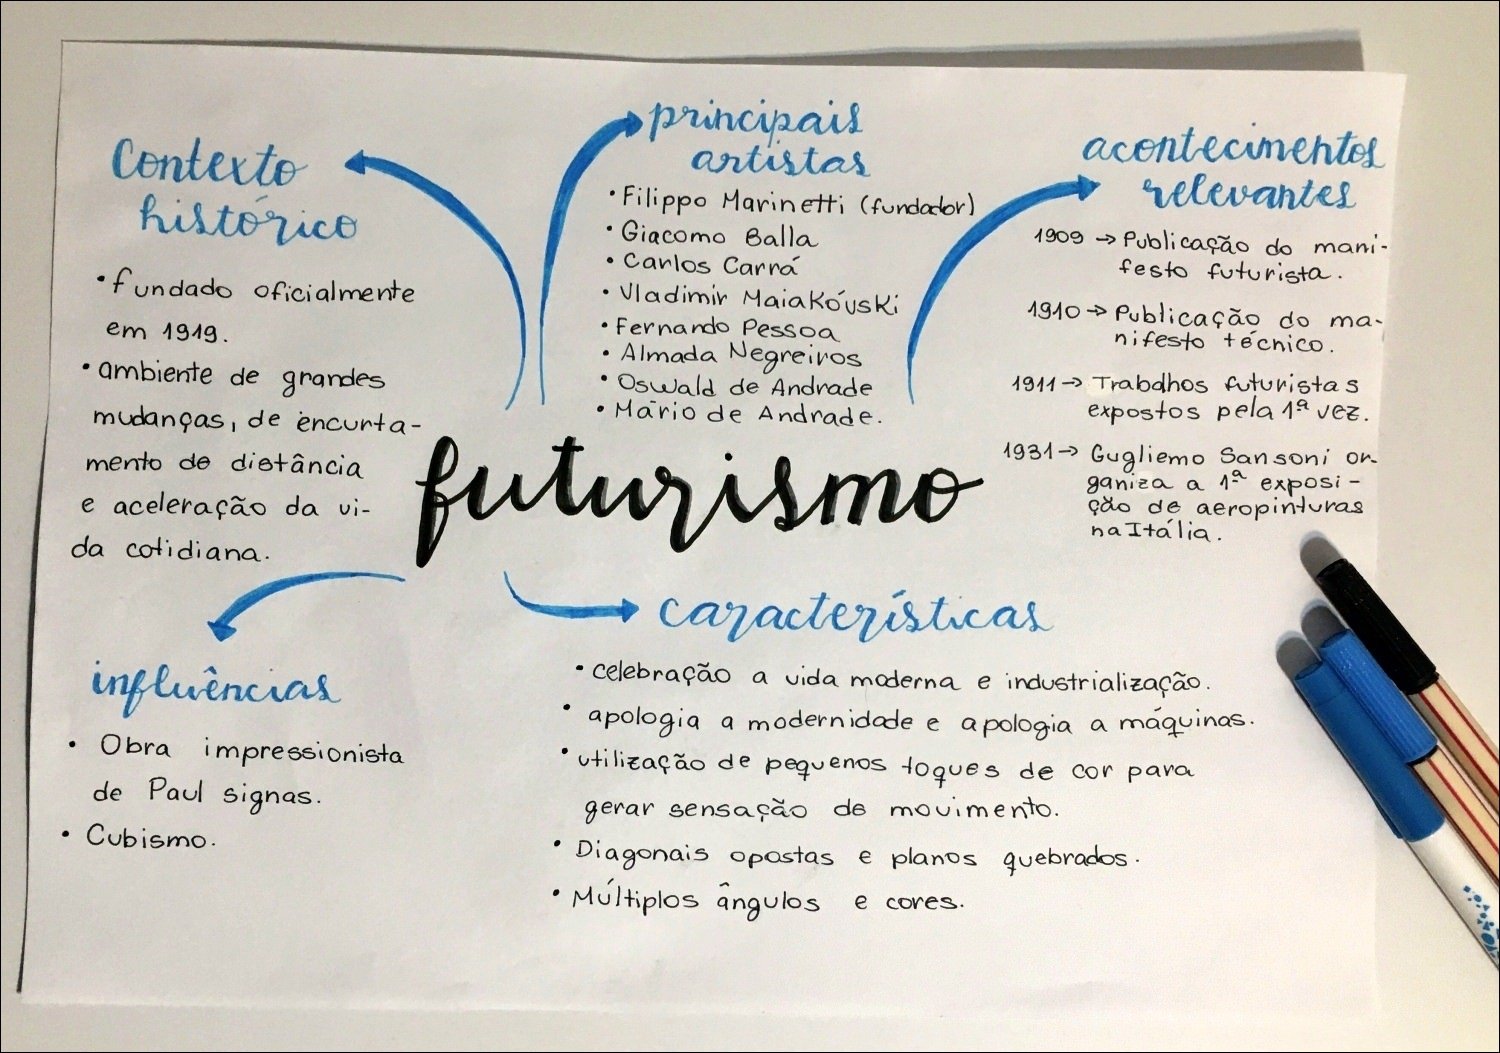 Contexto
histórico
• fundado oficialmente
em 1919.
• ambiente de grandes
mudanças, de encurta-
mento de distância
e aceleração da vi-
da cotidiana.
principais
artistas
• Filippo Marinetti (fundador)
• Giacomo Balla
• Carlos Carrá
• Vladimir Maiakóvski
• Fernando Pessoa
• Almada Negreiros
• Oswald de Andrade
• Mário de Andrade.
acontecimentos
relevantes
1909 → Publicação do mani-
festo futurista.
1910 → Publicação do ma-
nifesto técnico.
1911 → Trabalhos futuristas
expostos pela 1ª vez.
1931 → Gugliemo Sansoni or-
ganiza a 1ª exposi-
ção de aeropinturas
na Itália.
futurismo
influências
• Obra impressionista
de Paul signas.
• Cubismo.
características
• celebração a vida moderna e industrialização.
• apologia a modernidade e apologia a máquinas.
• utilização de pequenos toques de cor para
gerar sensação de movimento.
• Diagonais opostas e planos quebrados.
• Múltiplos ângulos e cores.